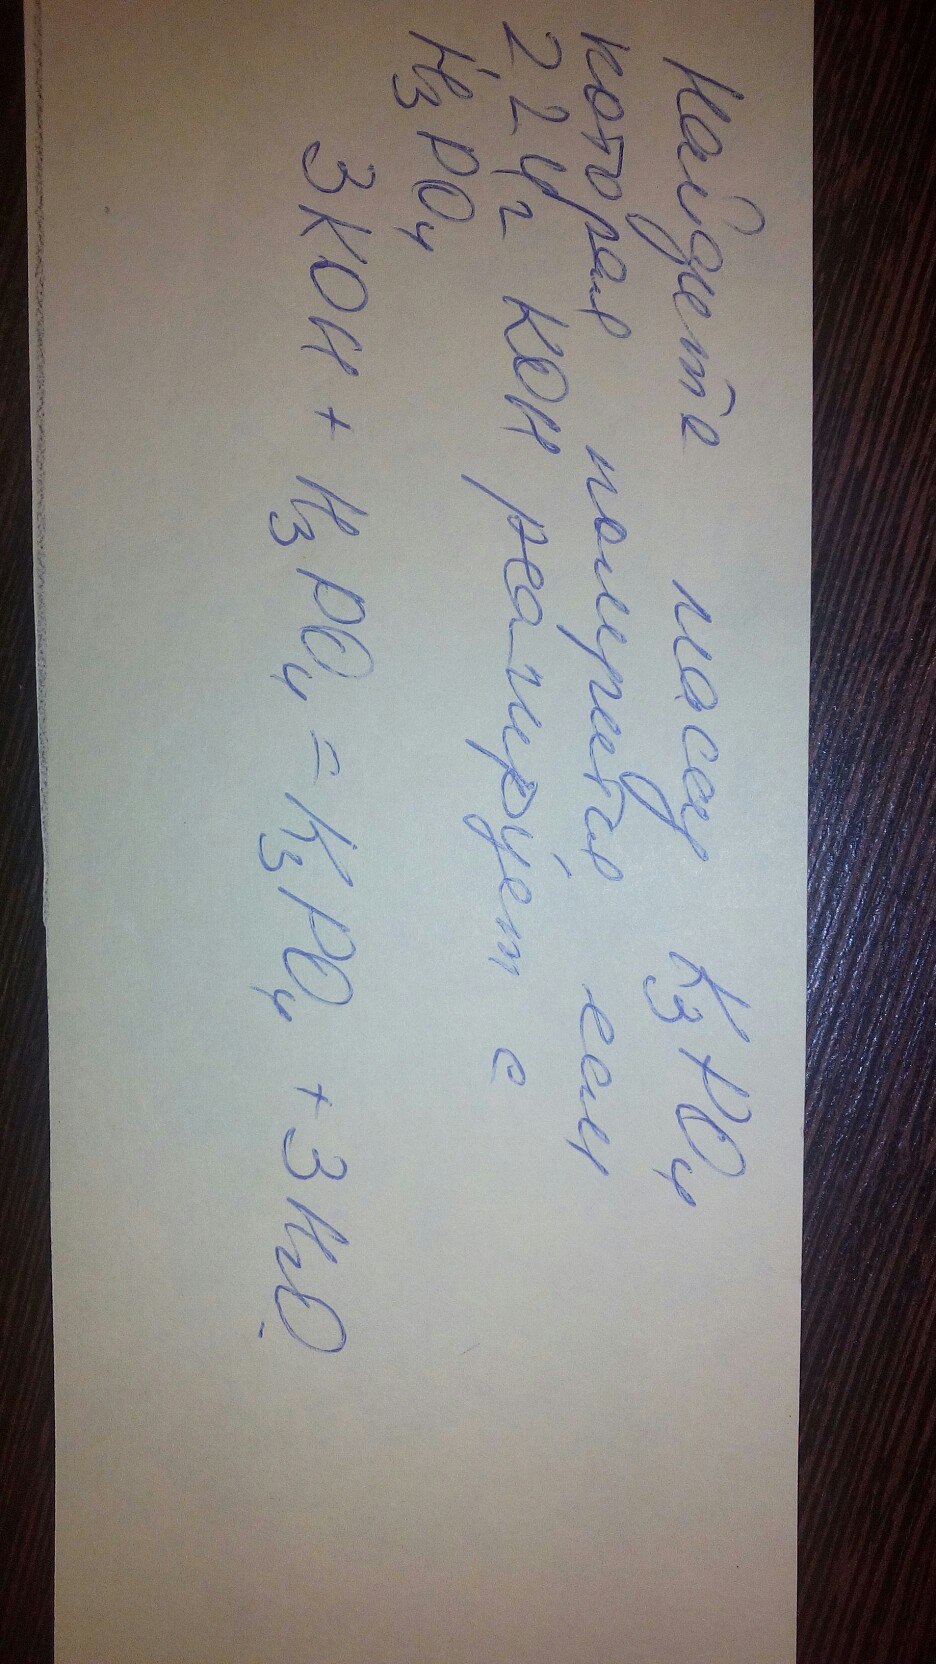 Найдите массу K₃PO₄
которая получится если
224г KOH реагируют с
H₃PO₄
3KOH + H₃PO₄ = K₃PO₄ + 3H₂O